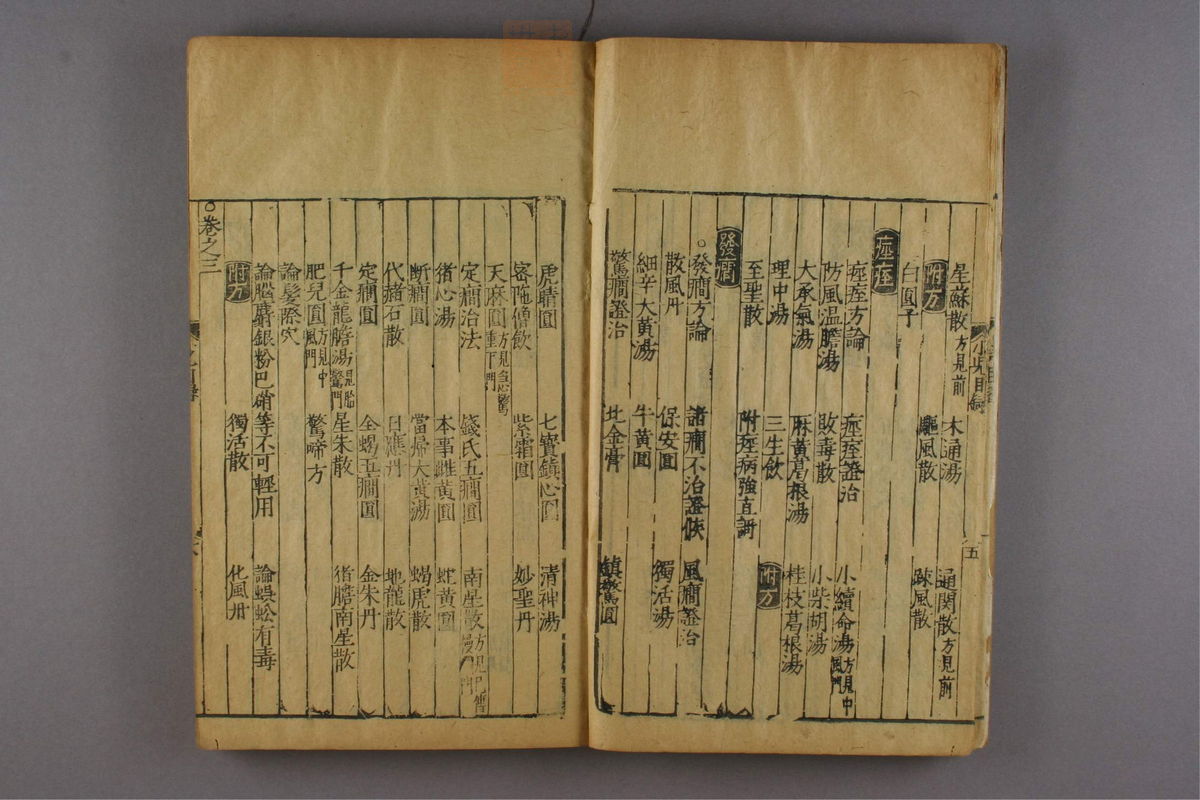 星蘇散方見前 木通湯 通関散方見前
附方 驅風散 疎風散
白圓子
痙痓
痙痓方論 痙痓證治 小續命湯方見中風門
防風温膽湯 敗毒散 小柴胡湯
大承氣湯 麻黄葛根湯 桂枝葛根湯
理中湯 三生飲 附方
至聖散 附痙病強直
發癇
○發癇方論 諸癇不治證候 風癇證治
散風丹 保安圓 獨活湯
細辛大黄湯 牛黄圓
驚癇證治 比金膏 鎮驚圓
小兒目録
五
虎睛圓 七寶鎮心圓 清神湯
密陁僧飲 紫霜圓 妙聖丹
天麻圓方見急驚重下門
定癇治法 錢氏五癇圓 南星散方見慢門
猪心湯 本事雌黄圓 蛇黄圓
断癇圓 當歸大黄湯 蝎虎散
代赭石散 日應丹 地龍散
定癇圓 全蝎五癇圓 金朱丹
千金龍膽湯見胎驚門 星朱散 猪膽南星散
肥兒圓方見中風門 驚啼方
論髮際穴
論腦麝銀粉巴硝等不可輕用 論蜈蚣有毒
附方 獨活散 化風丹
○卷之三